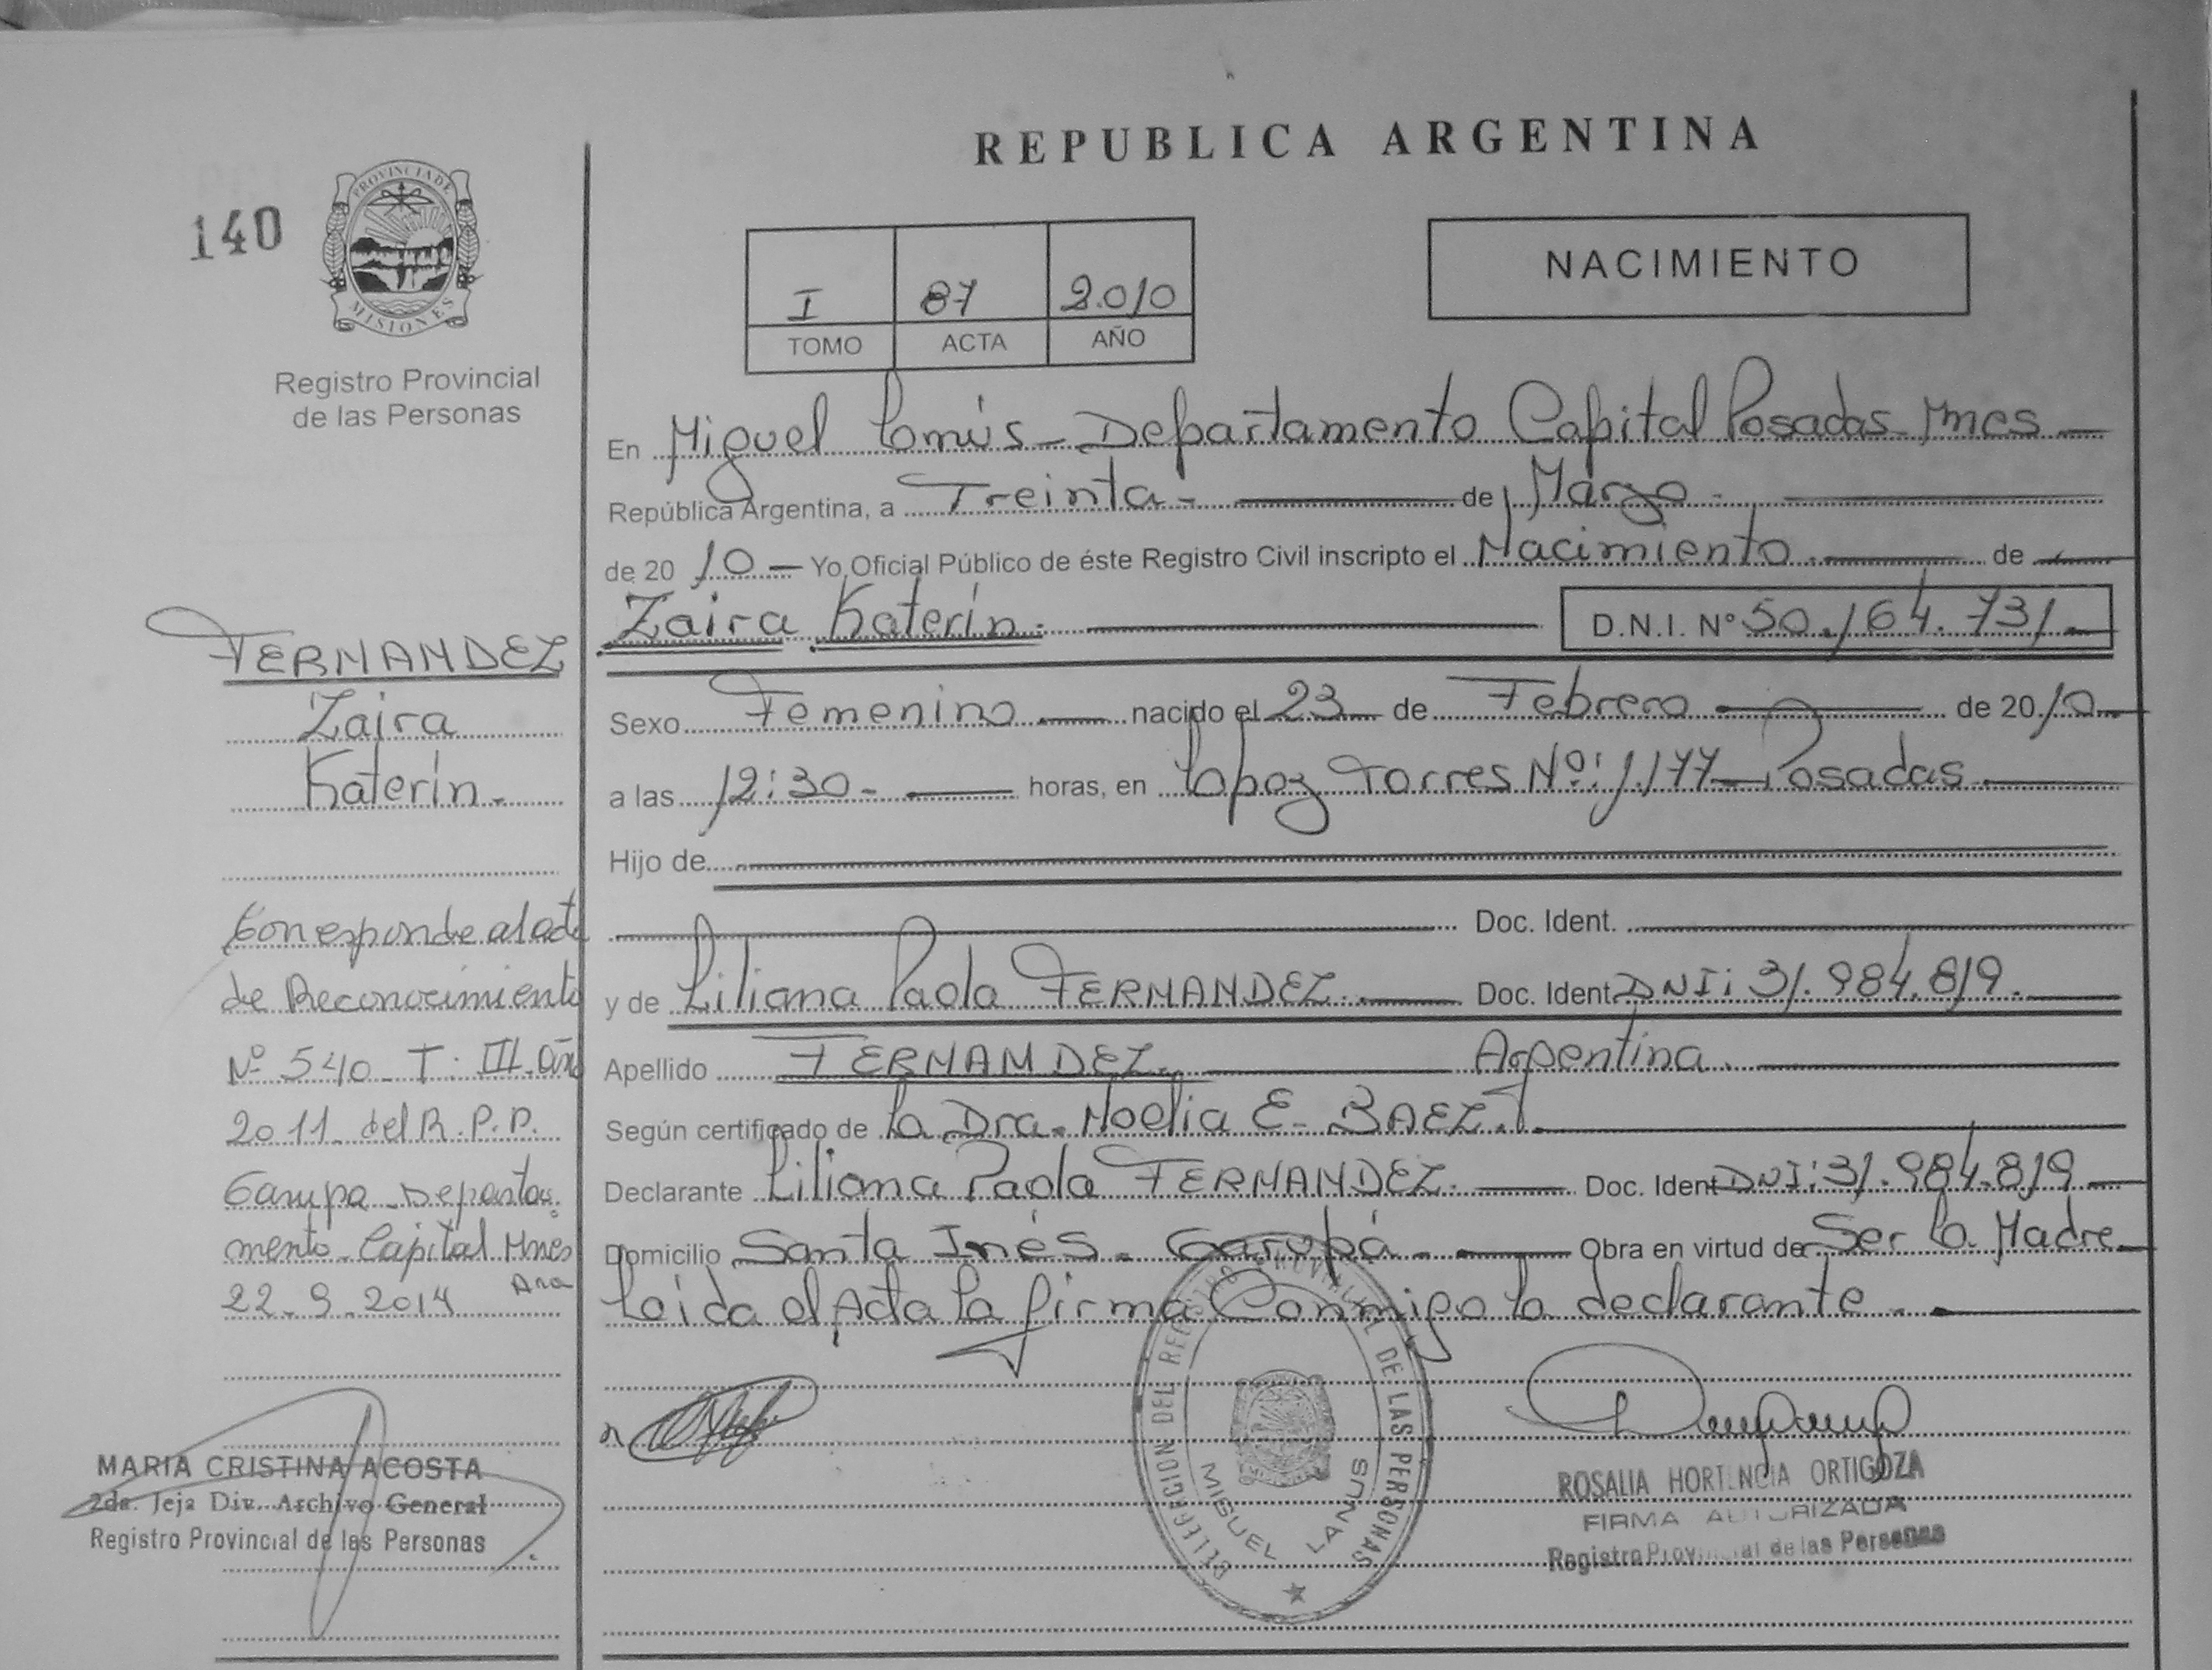 REPUBLICA ARGENTINA
140
PROVINCIA DE
MISIONES
Registro Provincial
de las Personas
I 87 2.010
TOMO ACTA AÑO
NACIMIENTO
En Miguel Lanús - Departamento Capital Posadas Mnes
República Argentina, a Treinta - de Marzo -
de 20 10 - Yo Oficial Público de éste Registro Civil inscripto el Nacimiento de
Zaira Katerín. D.N.I. Nº 50.164.731
Sexo Femenino nacido el 23 de Febrero de 20 10
a las 12:30 - horas, en López Torres Nº: 1.177 - Posadas
Hijo de
Doc. Ident.
y de Liliana Paola FERNANDEZ. Doc. Ident DNI: 31.984.819.
Apellido FERNANDEZ. Argentina.
Según certificado de la Dra. Noelia E. BAEZ
Declarante Liliana Paola FERNANDEZ. Doc. Ident DNI: 31.984.819
Domicilio Santa Inés. Garupá. Obra en virtud de Ser la Madre
Leída el Acta la firma Conmigo la declarante.
FERNANDEZ
Zaira
Katerín.
Corresponde al acta
de Reconocimiento
Nº 540 - T. III. año
2011 del R.P.P.
Garupa - Departa
mento - Capital Mnes
22-9-2014
MARIA CRISTINA ACOSTA
2da. Jefa Div. Archivo General
Registro Provincial de las Personas
DELEGACION DEL REGISTRO PROVINCIAL DE LAS PERSONAS
MIGUEL LANUS
ROSALIA HORTENCIA ORTIGOZA
FIRMA AUTORIZADA
Registro Provincial de las Personas